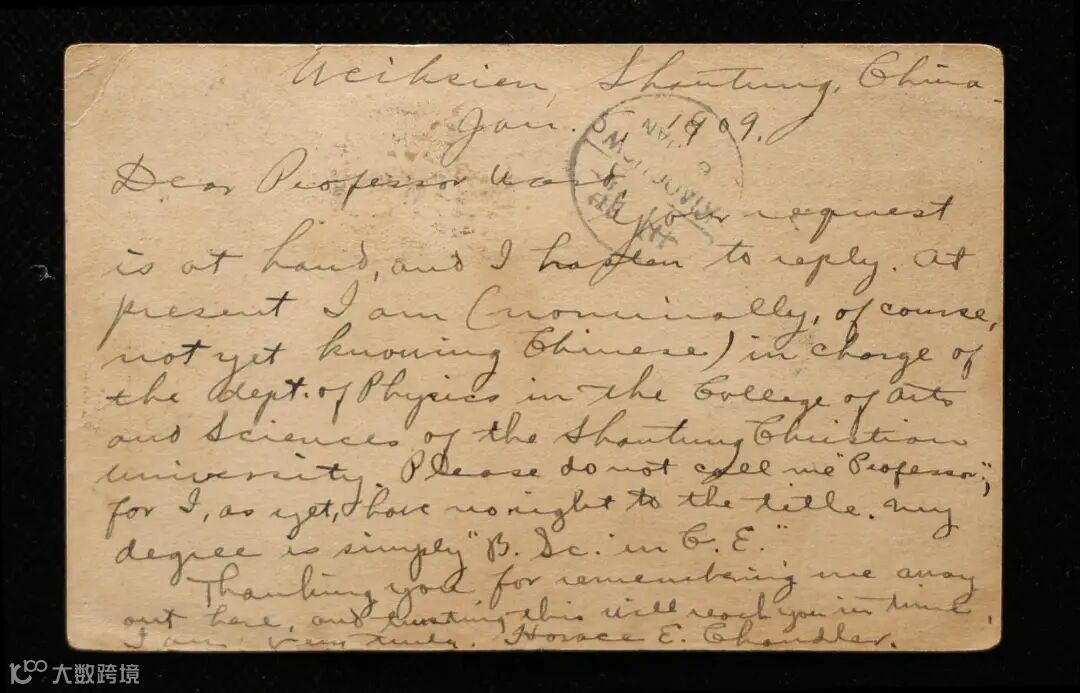 Weihsien, Shantung, China.
Jan. 1909.
Dear Professor
Your request
is at hand, and I hasten to reply. At
present I am (nominally, of course,
not yet knowing Chinese) in charge of
the dept. of Physics in the College of Arts
and Sciences of the Shantung Christian
University. Please do not call me "Professor",
for I, as yet, have no right to the title. My
degree is simply "B. Sc. in C. E."
Thanking you for remembering me away
out here, and trusting this will reach you in time,
I am very truly, Horace E. Chandler.
大数跨境